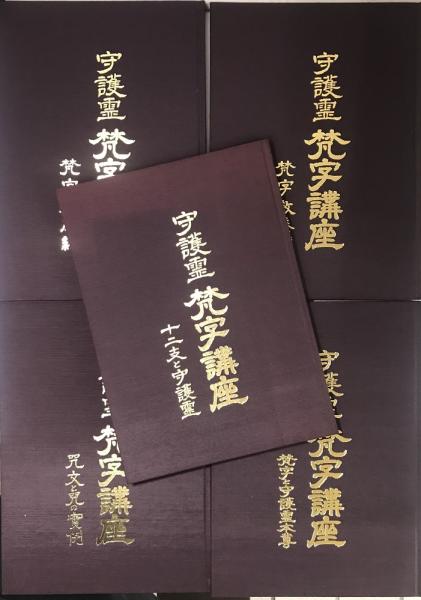 守護霊
梵字講座
梵字
守護霊
梵字講座
梵字教
守護霊
梵字講座
十二支と守護霊
梵字講座
咒文と咒の實例
守護
梵字講座
梵字と守護霊本尊